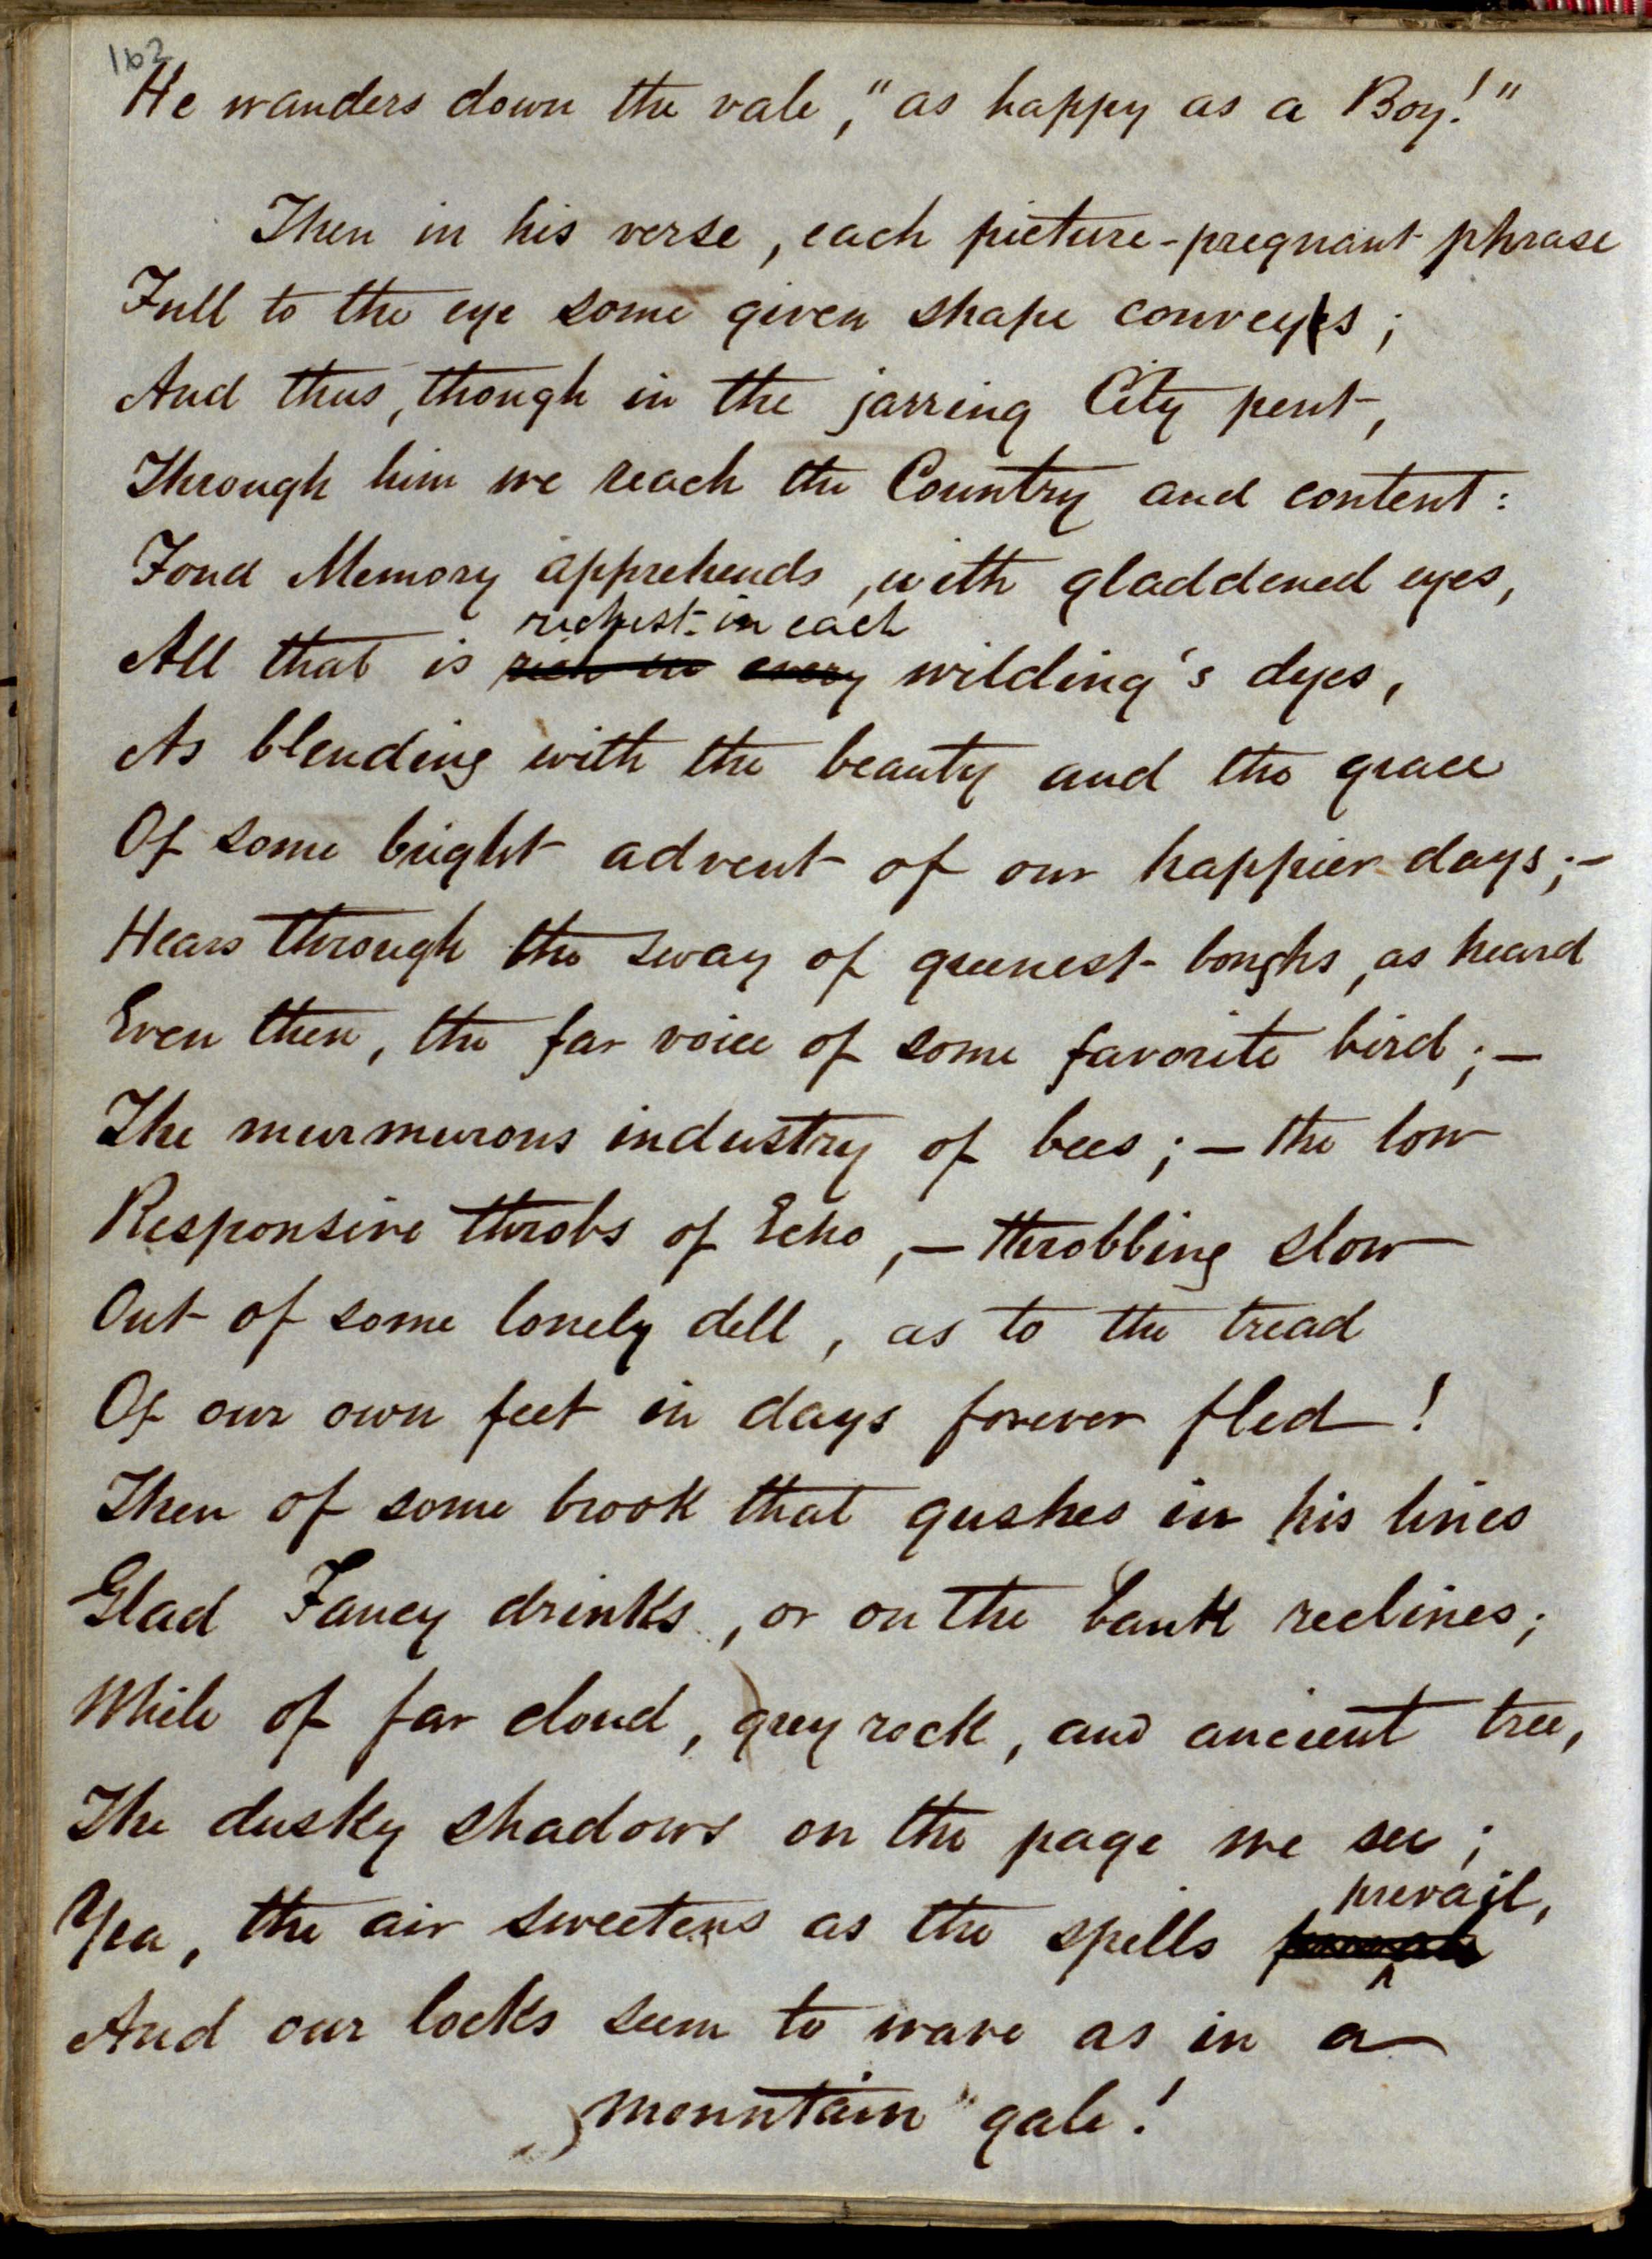 162
He wanders down the vale, "as happy as a Boy!"
Then in his verse, each picture-pregnant phrase
Full to the eye some given shape conveys;
And thus, though in the jarring City pent,
Through him we reach the Country and content:
Fond Memory apprehends, with gladdened eyes,
richest in each
All that is rich in every wilding's dyes,
As blending with the beauty and the grace
Of some bright advent of our happier days;—
Hears through the sway of greenest boughs, as heard
Even then, the far voice of some favorite bird;—
The murmurous industry of bees;— the low
Responsive throbs of Echo,— throbbing slow
Out of some lonely dell, as to the tread
Of our own feet in days forever fled!
Then of some brook that gushes in his lines
Glad Fancy drinks, or on the bank reclines;
While of far cloud, grey rock, and ancient tree,
The dusky shadows on the page we see;
prevail,
Yea, the air sweetens as the spells
And our locks seem to wave as in a
mountain gale!